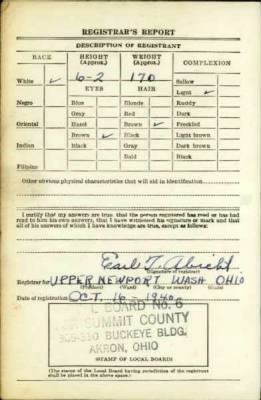 REGISTRAR'S REPORT
DESCRIPTION OF REGISTRANT
RACE HEIGHT (Approx.) WEIGHT (Approx.) COMPLEXION
White ✓ 6-2 170 Sallow
EYES HAIR Light ✓
Negro Blue Blonde Ruddy
Gray Red Dark
Oriental Hazel Brown ✓ Freckled
Brown ✓ Black Light brown
Indian Black Gray Dark brown
Bald Black
Filipino
Other obvious physical characteristics that will aid in identification
I certify that my answers are true; that the person registered has read or has had
read to him his own answers; that I have witnessed his signature or mark and that
all of his answers of which I have knowledge are true, except as follows:
Earl T.
(Signature of registrar)
Registrar for UPPER NEWPORT WASH OHIO
(Precinct) (Ward) (City or county) (State)
Date of registration OCT. 16 - 1940
L BOARD NO. 6
SUMMIT COUNTY
BUCKEYE BLDG.
AKRON, OHIO
(STAMP OF LOCAL BOARD)
(The stamp of the Local Board having jurisdiction of the registrant
shall be placed in the above space.)